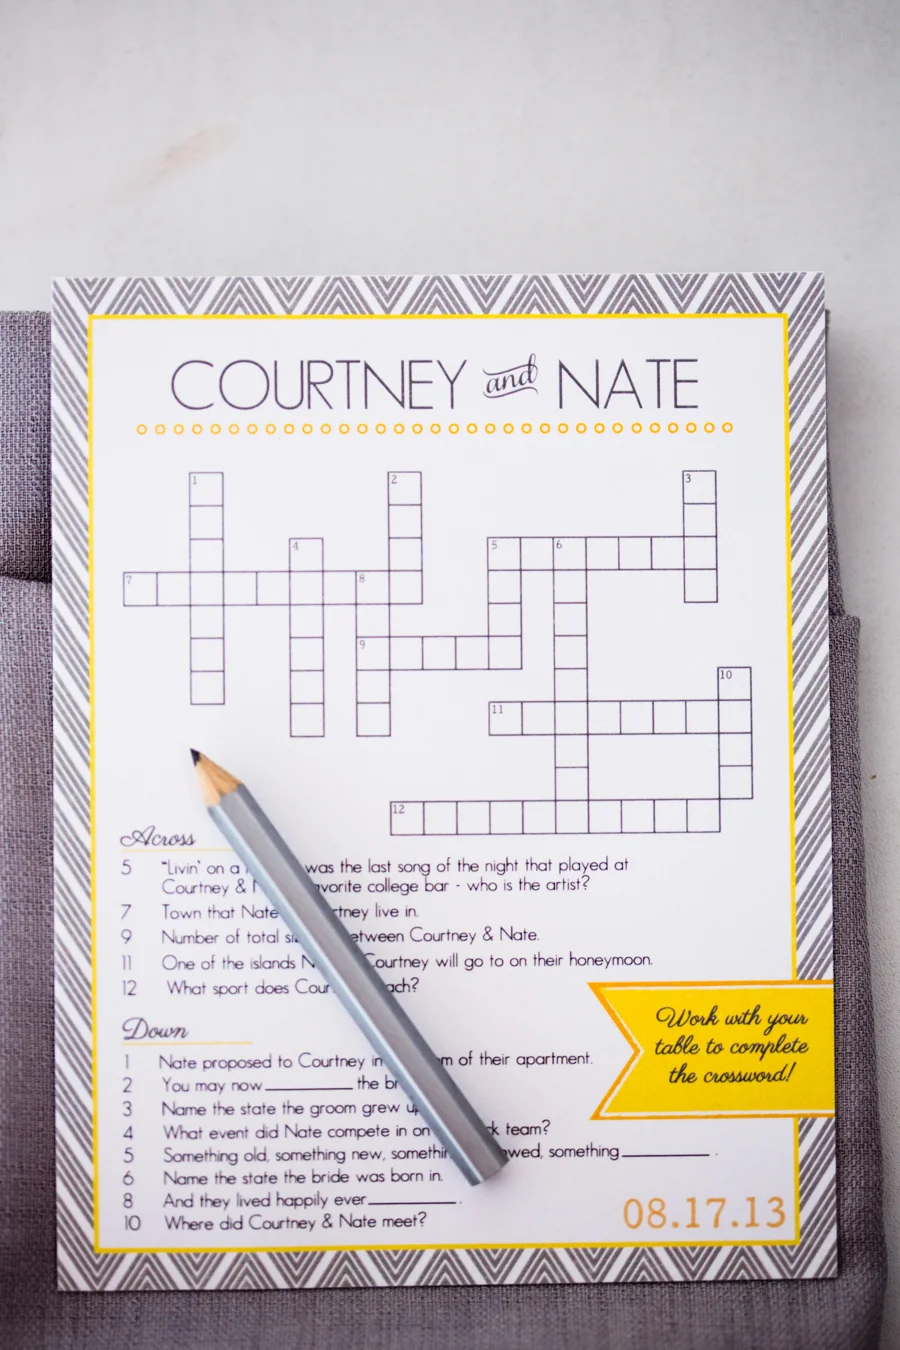 COURTNEY and NATE
1
2
3
4
5
6
7
8
9
10
11
12
Across
5 "Livin' on a was the last song of the night that played at
Courtney & college bar - who is the artist?
7 Town that Nate live in.
9 Number of total between Courtney & Nate.
11 One of the islands Courtney will go to on their honeymoon.
12 What sport does
Down
1 Nate proposed to Courtney in of their apartment.
2 You may now ________ the
3 Name the state the groom grew
4 What event did Nate compete in on team?
5 Something old, something new, something something ________ .
6 Name the state the bride was born in.
8 And they lived happily ever ________ .
10 Where did Courtney & Nate meet?
Work with your
table to complete
the crossword!
08.17.13